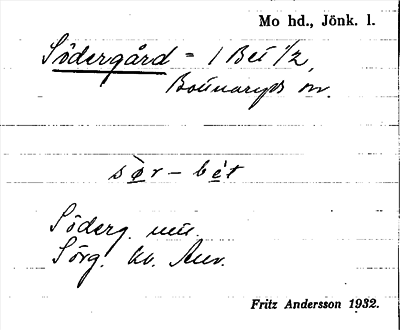 Mo hd., Jönk. l.
Södergård = 1 Bet 1/2,
Bottnaryds sn.
sør - bét
Söderg. utt.
Sörg. kv. Anv.
Fritz Andersson 1932.